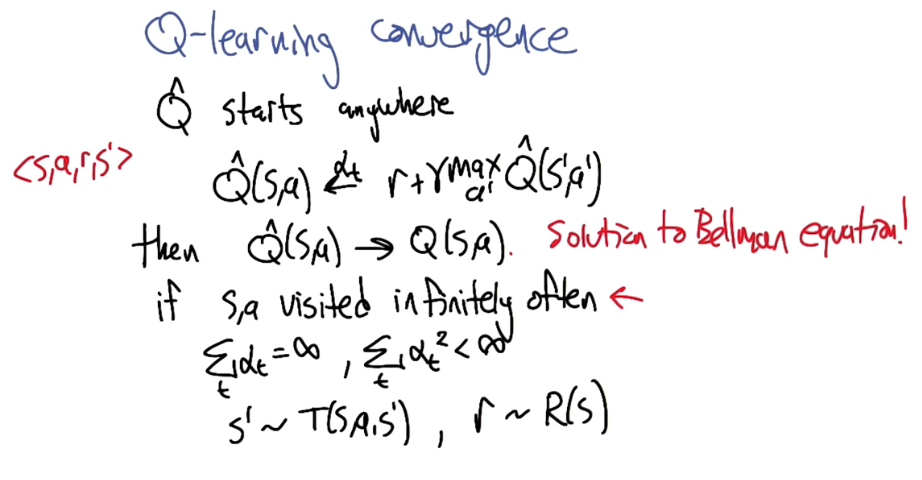 Q-learning convergence
Q̂ starts anywhere
<s,a,r,s'>
Q̂(s,a) ←^αt r+γ max_a' Q̂(s',a')
then Q̂(s,a) → Q(s,a). Solution to Bellman equation!
if s,a visited infinitely often ←
Σ_t αt = ∞, Σ_t αt² < ∞
s' ~ T(s,a,s'), r ~ R(s)